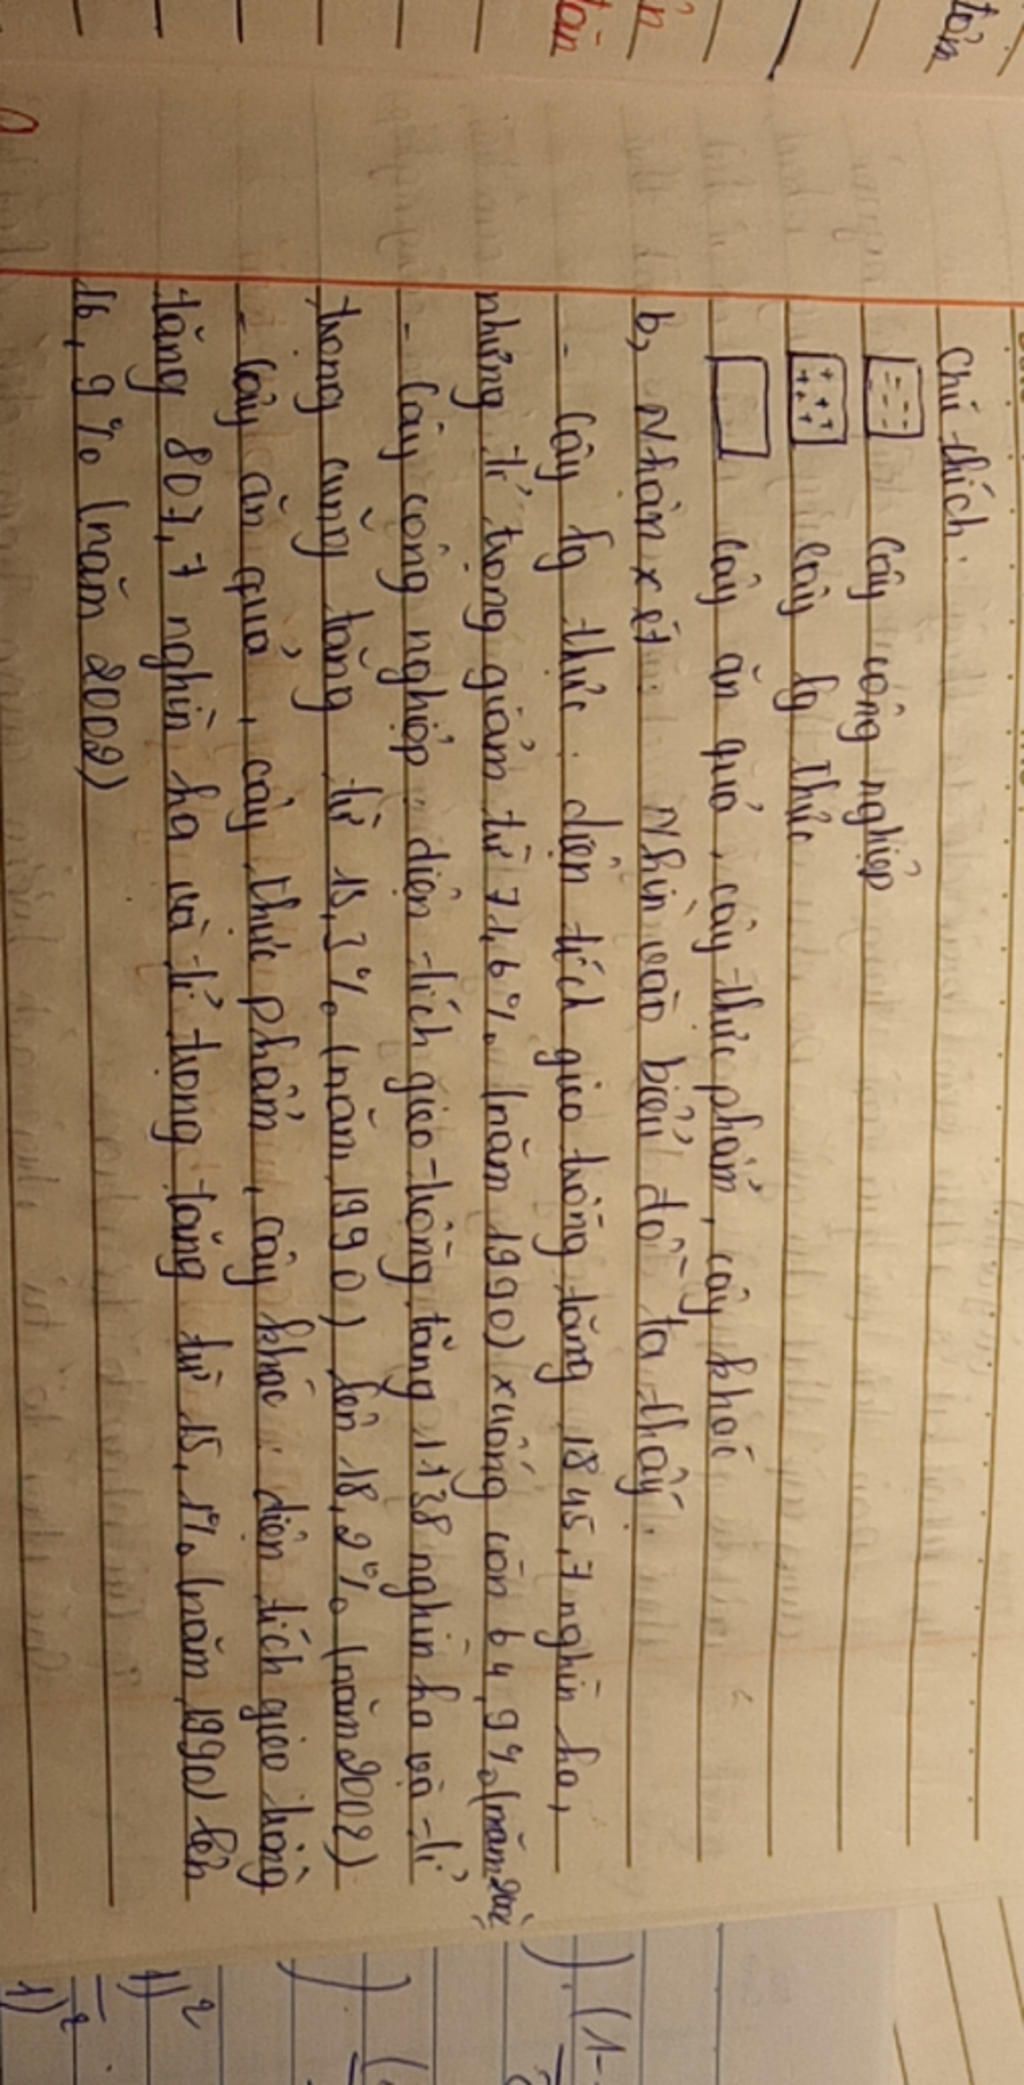 Chú thích:
cây công nghiệp
cây lg thực
cây ăn quả, cây thực phẩm, cây khác
b, Nhận xét: Nhìn vào biểu đồ ta thấy:
- Cây lg thực: diện tích gieo trồng tăng 1845,7 nghìn ha,
nhưng tỉ trọng giảm từ 71,6% (năm 1990) xuống còn 64,9% (năm 2002)
- Cây công nghiệp: diện tích gieo trồng tăng 1138 nghìn ha và tỉ
trọng cũng tăng từ 13,3% (năm 1990) lên 18,2% (năm 2002)
- Cây ăn quả, cây thực phẩm, cây khác: diện tích gieo trồng
tăng 807,7 nghìn ha và tỉ trọng tăng từ 15,1% (năm 1990) lên
16,9% (năm 2002)